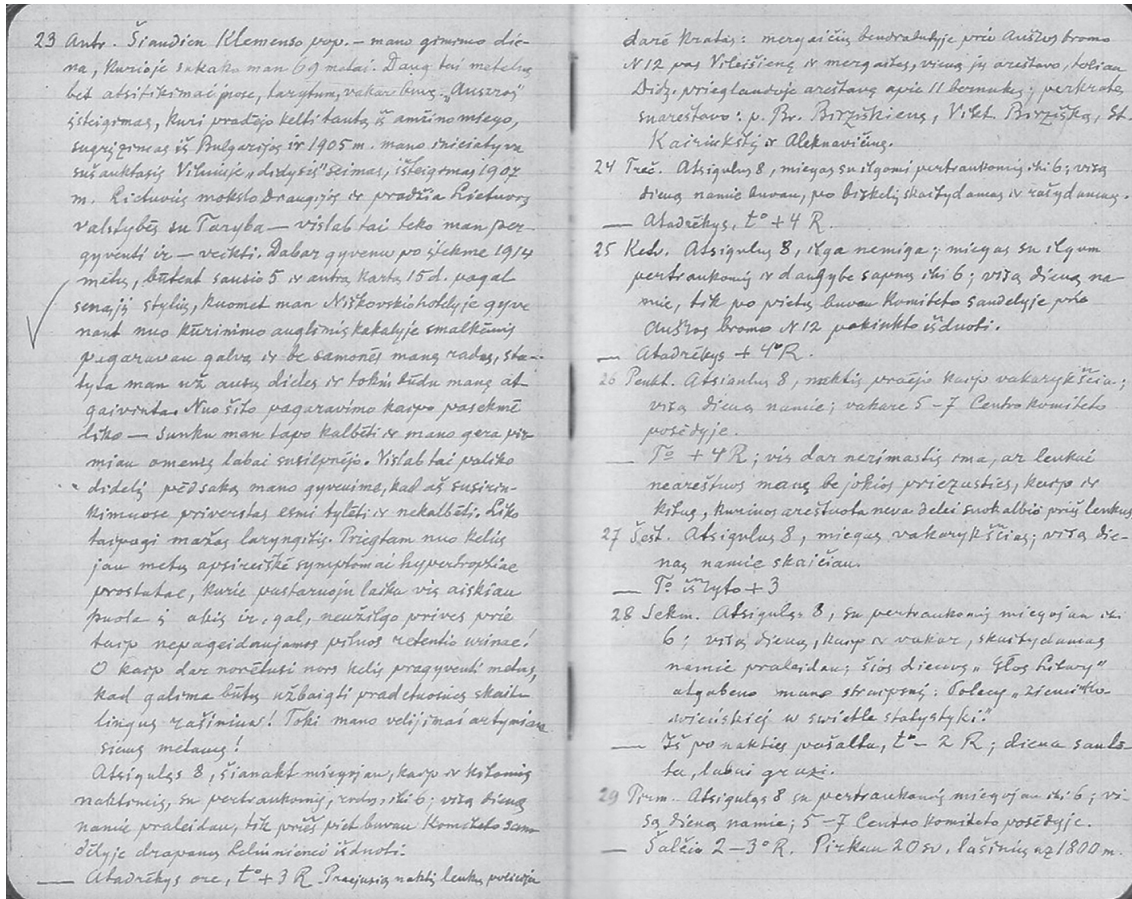 23 Antr. Šiandien Klemenso pop. – mano gimimo die-
na, kurioje sukako man 69 metai. Daug tai metelių
bet atsitikimai juose, tarytum, vakar buvę. „Auszros"
įsteigimas, kuri pradėjo kelti tautą iš amžino miego,
sugrįžimas iš Bulgarijos ir 1905 m. mano iniciatyva
sušauktasis Vilniuje „didysis" Seimas, išteigimas 1907
m. Lietuvių mokslo Draugijos ir pradžia Lietuvos
valstybės su Taryba — vislab tai teko man per-
gyventi ir — veikti. Dabar gyvenu po ištikme 1914
metų, būtent sausio 5 ir antrą kartą 15 d. pagal
senąjį stylių, kuomet man Niškovskio hotelyje gyve
nant nuo kūrinimo anglimis kakalyje smalkėmis
pagaravau galvą ir be samonės maną radus, sta-
tyta man už ausų dieles ir tokiu būdu maną at-
gaivinta. Nuo šito pagaravimo kaipo pasekmė
liko — sunku man tapo kalbėti ir mano gera pir-
miau omenis labai susilpnėjo. Vislab tai paliko
didelį pėdsaką mano gyvenime, kad aš susirin-
kimuose priverstas esmi tylėti ir nekalbėti. Liko
taipogi mažas laryngitis. Priegtam nuo kelių
jau metų apsireiškė symptomai hypertrophiae
prostatae, kurie pastaruoju laiku vis aiškiau
puola į akis ir, gal, neužilgo prives prie
taip nepageidaujamos pilnos retentio urinae!
O kaip dar norėtusi nors kelis pragyventi metus,
kad galima būtų užbaigti pradėtuosius skait-
lingus rašinius! Toki mano velijimai artymiau
siems metams!
Atsigulęs 8, šianakt miegojau, kaip ir kitomis
naktimis, su pertraukomis, rodos, iki 6; visą dieną
namie praleidau, tik prieš piet buvau Komiteto san
dėlyje drapanų išduoti.
— Atadrėkys ore, t° + 3 R. Praejusią naktį lenkų policija
darė kratas: mergaičių bendrabutyje prie Aušros bromo
N 12 pas Vileišienę ir mergaites, vieną jų areštavo, toliau
Didž. prieglaudoje areštavę apie 11 bernukų; perkrata
suareštavo: p. Br. Biržiškienę, Vikt. Biržišką, St.
Kairiukštį ir Aleknavičių.
24 Treč. Atsigulęs 8, miegas su ilgomi pertraukomis iki 6; visą
dieną namie buvau, po biskelį skaitydamas ir rašydamas.
— Atadrėkys, t° + 4 R.
25 Ketv. Atsigulęs 8, ilga nemiga; miegas su ilgom
pertraukomis ir daugybe sapnų iki 6; visą dieną na-
mie, tik po pietų buvau Komiteto sandelyje prie
Aušros bromo N 12 pakinkto išduoti.
— Atadrėkys + 4° R.
26 Penkt. Atsigulęs 8, naktis praėjo kaip vakarykščia;
visą dieną namie; vakare 5 – 7 Centro Komiteto
posėdyje.
— T° + 4 R; vis dar nerimastis ima, ar lenkai
neareštuos manę be jokios priežasties, kaip ir
kitus, kuriuos areštuota neva delei suokalbio prieš lenkus
27 Šešt. Atsigulęs 8, miegas vakarykščias; visą die-
ną namie skaičiau.
— T° iš ryto + 3
28 Sekm. Atsigulęs 8, su pertraukomis miegojau iki
6; visą dieną, kaip ir vakar, skaitydamas
namie praleidau; šios dienos „Głos Litwy"
atgabeno mano straipsnį: Polacy „ziemi Ko-
wieńskiéj w swietle statystyki."
— Iš po nakties pašalta, t° – 2 R; diena saulė-
ta, labai graži.
29 Pirm. Atsigulęs 8 su pertraukomis miegojau iki 6; vi-
są dieną namie; 5 – 7 Centro Komiteto posėdyje.
— Šalčio 2 – 3° R. Pirkau 20 sv. lašinių už 1800 m.